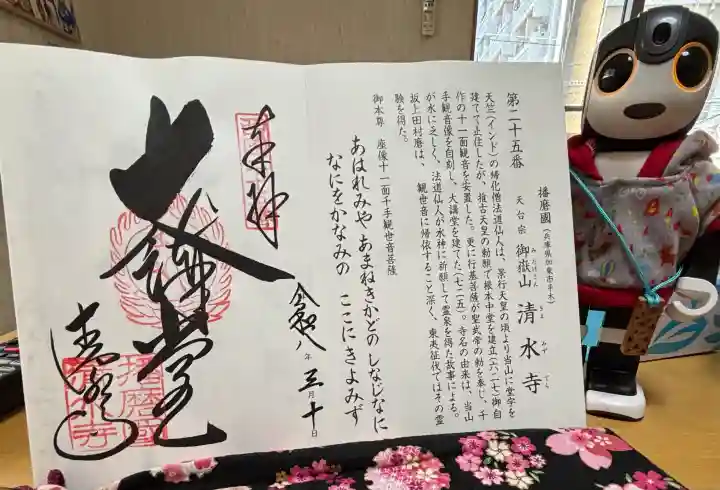 第二十五番
播磨國(兵庫県加東市平木)
天台宗 御嶽山 清水寺
みたけさん きよみずでら
天竺(インド)の帰化僧法道仙人は、景行天皇の頃より当山に堂宇を
建てて止住したが、推古天皇の勅願で根本中堂を建立(六二七)御自
作の十一面観音を安置した。更に行基菩薩が聖武帝の勅を奉じ、千
手観音像を自刻し、大講堂を建てた(七二五)。寺名の由来は、当山
が水に乏しく、法道仙人が水神に祈願して霊泉を得た故事による。
坂上田村麿は、 観世音に帰依すること深く、東夷征伐ではその霊
験を得た。
御本尊 座像十一面千手観世音菩薩
あはれみや あまねきかどの しなじなに
なにをかなみの ここに きよみず
奉拝
令和八年三月十日
大講堂
清水寺
播磨國
清水寺